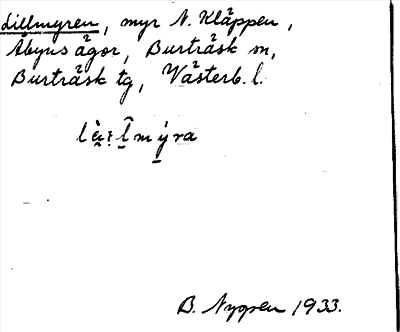 Lillmyren, myr N. Kläppen,
Åbyns ägor, Burträsk sn,
Burträsk tg, Västerb. l.
B. Nygren 1933.